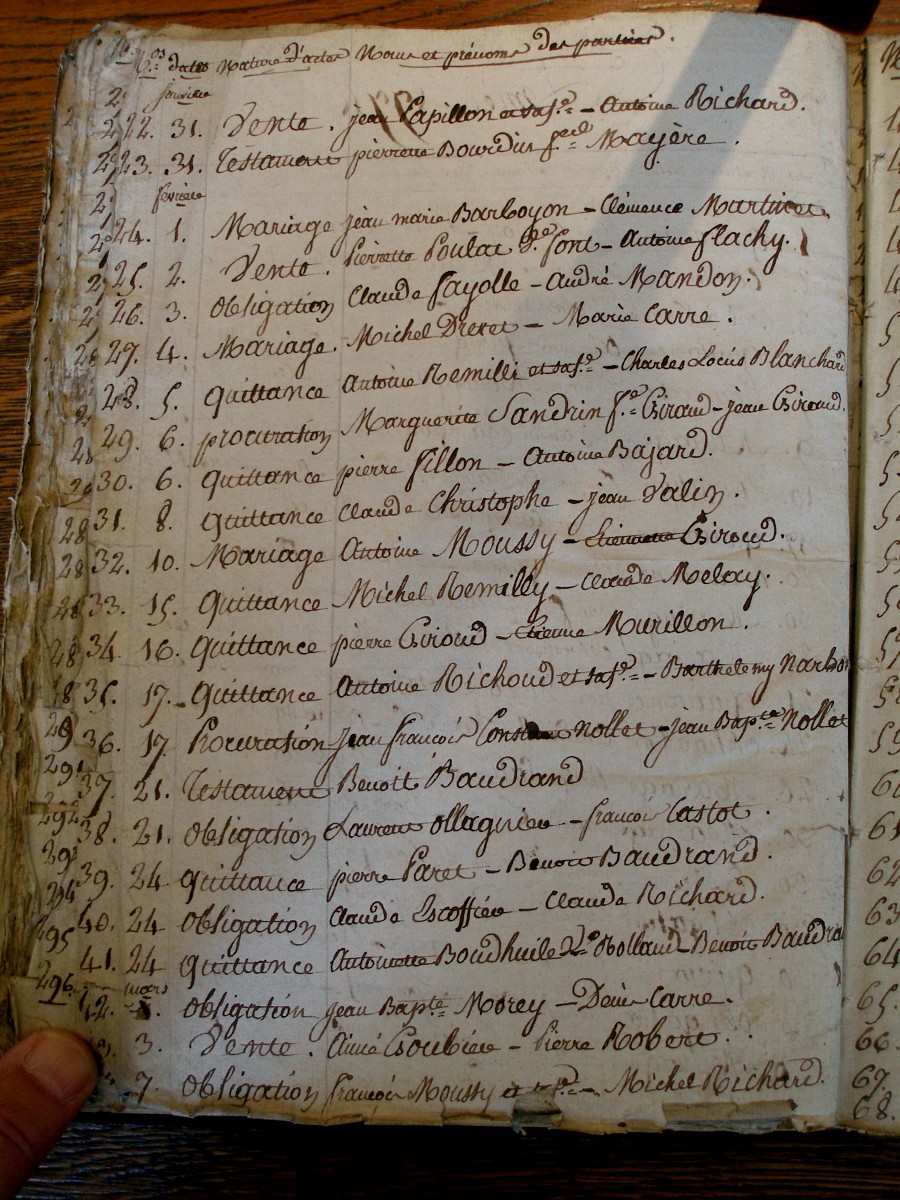 N.os dates Nature d'actes Noms et prénoms des parties.
janvier
22. 31. Vente. jean Papillon et sa f.e – Antoine Richard.
23. 31. Testament pierrette Bourdin f.e Mayère.
février
24. 1. Mariage jean marie Barboyon – Clémence Martinet
25. 2. Vente. Pierrette Poulat v.e font – Antoine flachy.
26. 3. obligation Claude fayolle – André Mandon.
27. 4. Mariage. Michel Drevet – Marie Carre.
28. 5. quittance Antoine Remilli et sa f.e – Charles Louis Blanchard
29. 6. procuration Marguerite Sandrin f.e Giraud – jean Giroud.
30. 6. quittance pierre fillon – Antoine Bajard.
31. 8. quittance Claude Christophe – jean Valin.
32. 10. Mariage Antoine Moussy – Etiennette Giroud.
33. 15. quittance Michel Remilly – Claude Melay.
34. 16. quittance pierre Giroud – Etienne Murillon.
35. 17. quittance Antoine Richoud et sa f.e – Barthelemy Narbon
36. 17 Procuration jean françois Nollet – jean Bap.te Nollet
37. 21. Testament Benoit Baudrand
38. 21. obligation Laurent ollagnier – françois Castot.
39. 24 quittance pierre Paret – Benoit Baudrand.
40. 24 obligation Claude Escoffier – Claude Richard.
41. 24 quittance Antoinette Boudhuile v.e Rolland – Benoit Baudra
mars
42. obligation jean Bap.te Morey – Denis Carre.
3. Vente. Aimé Goubier – Pierre Robert.
7 obligation françois Moussy – Michel Richard.
60
61
62
63
64
65.
66.
67.
68.